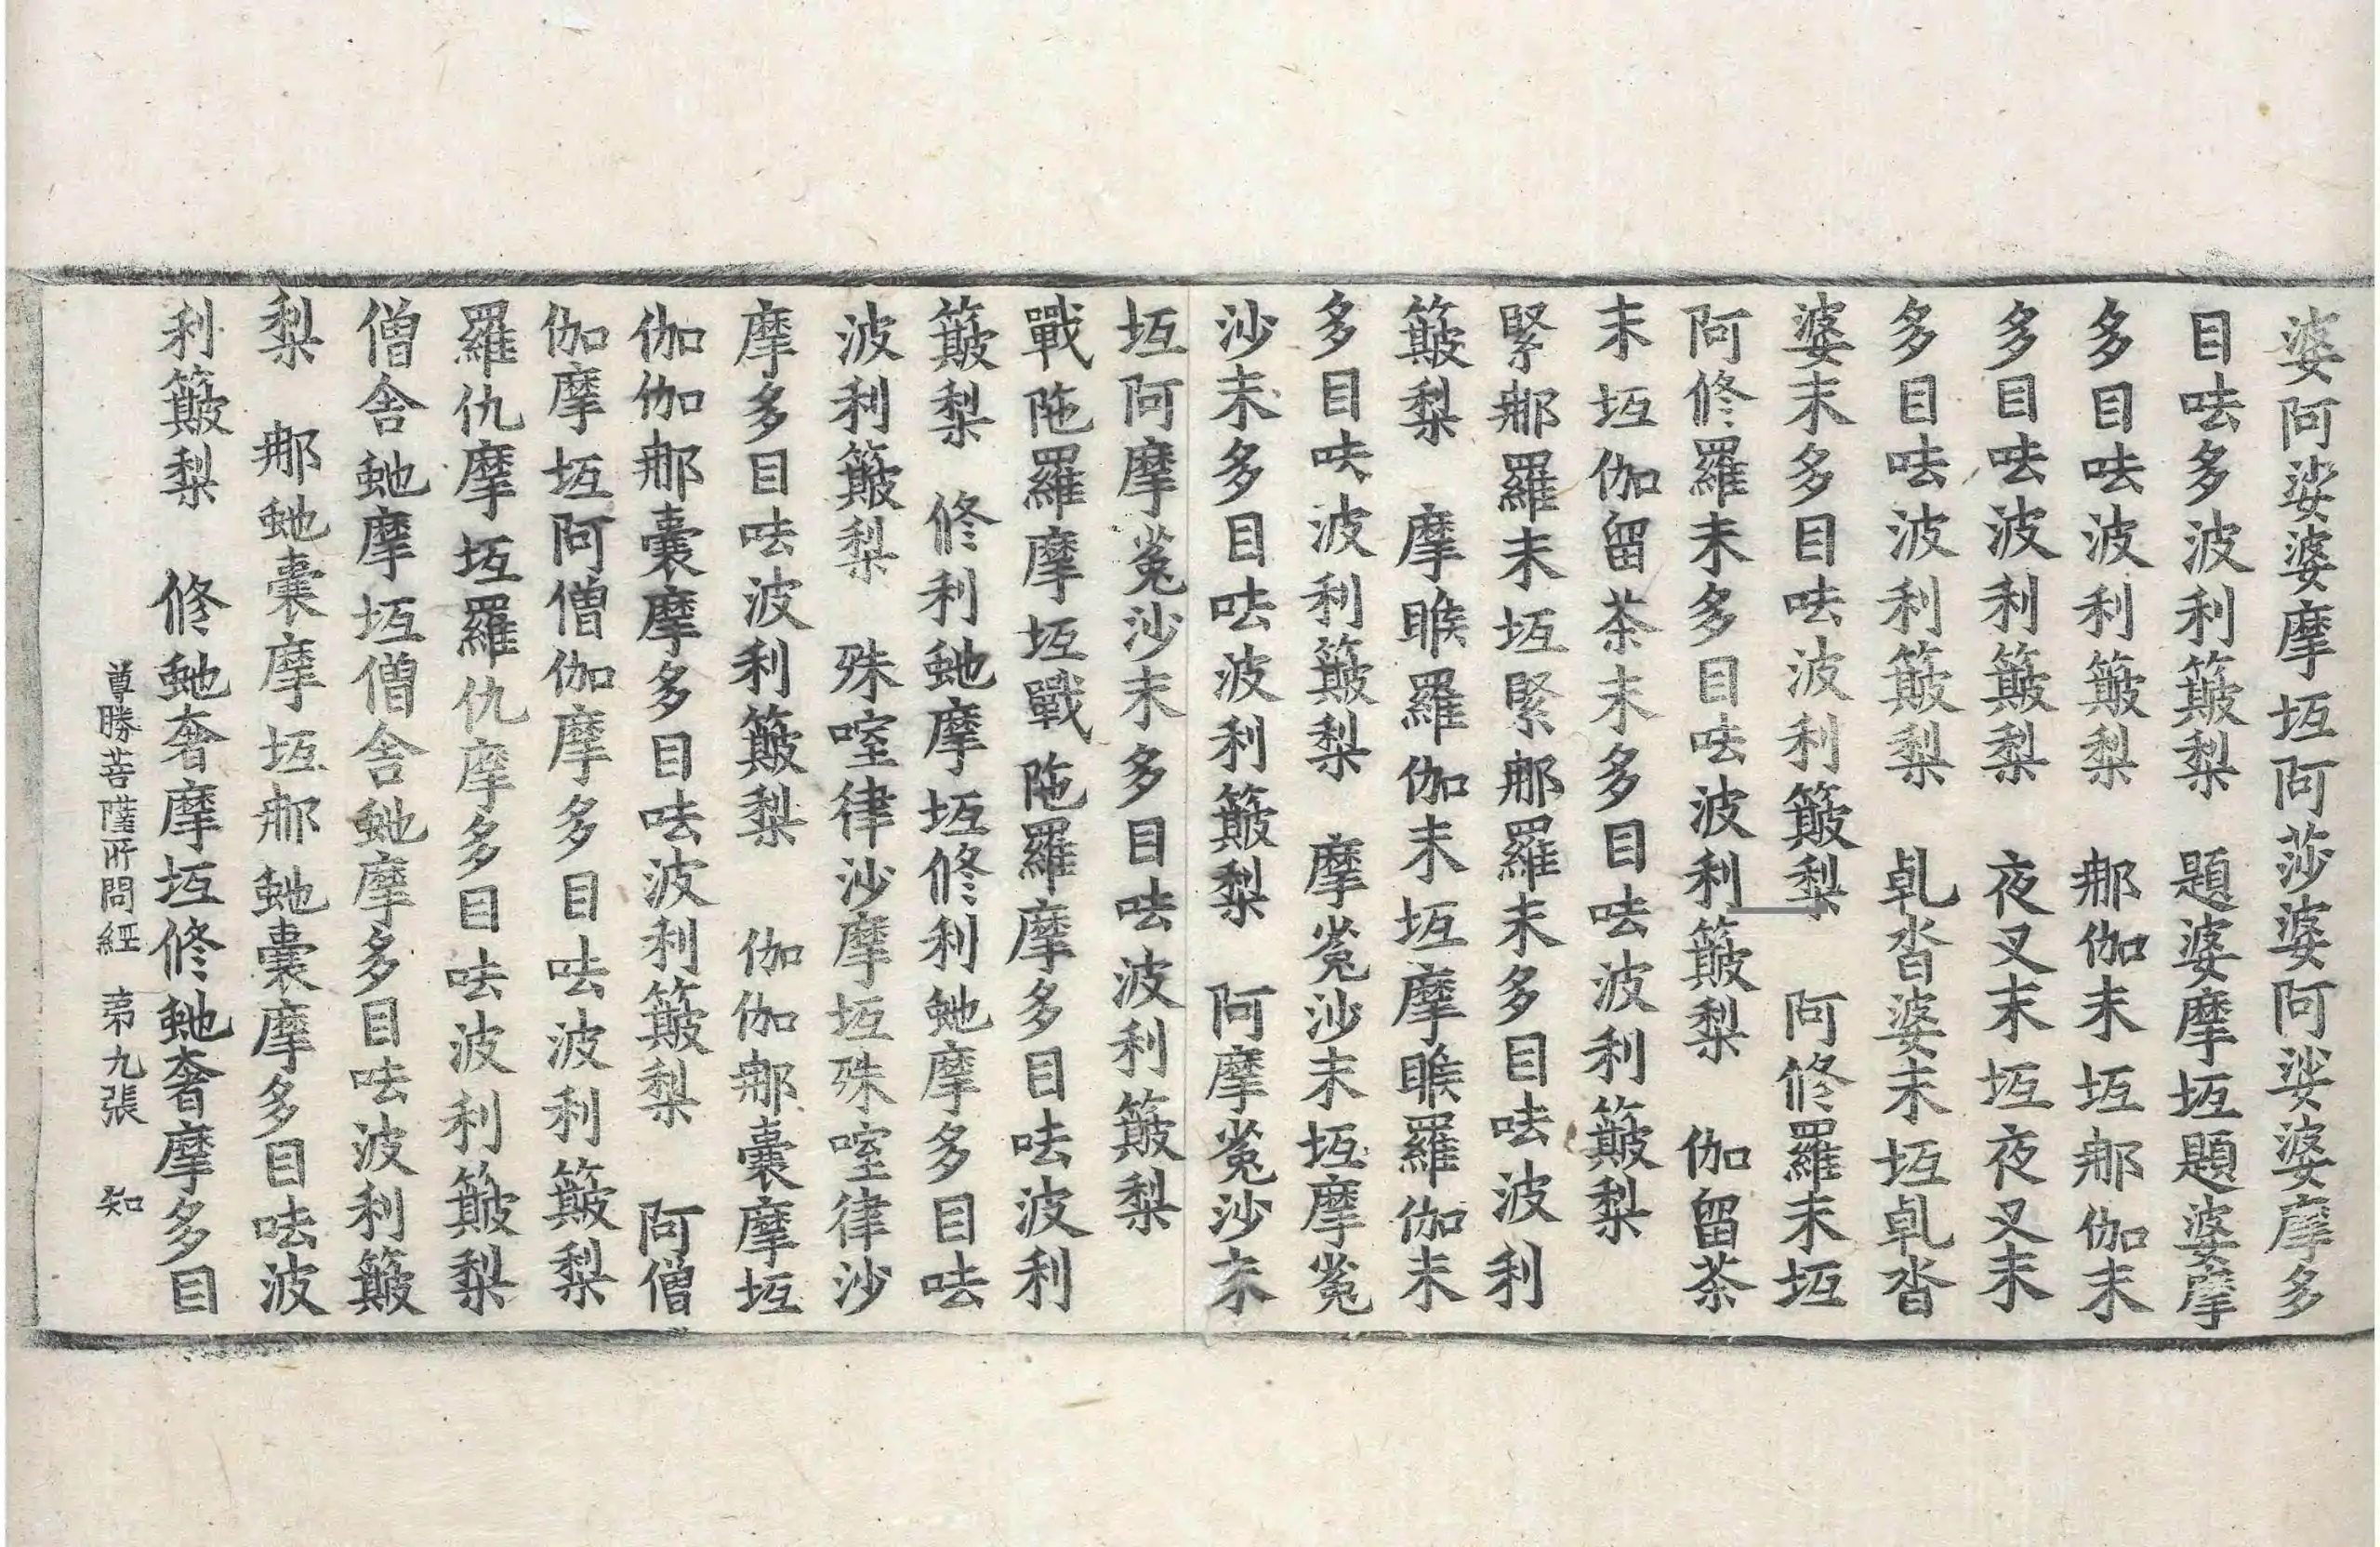 婆阿娑婆摩坘阿莎婆阿娑婆摩多
目呿多波利簸梨　題婆摩坘題婆摩
多目呿波利簸梨　那伽末坘那伽末
多目呿波利簸梨　夜叉末坘夜叉末
多目呿波利簸梨　乹沓婆末坘乹沓
婆末多目呿波利簸梨　阿修羅末坘
阿修羅末多目呿波利簸梨　伽留茶
末坘伽留茶末多目呿波利簸梨
緊那羅末坘緊那羅末多目呿波利
簸梨　摩睺羅伽末坘摩睺羅伽末
多目呿波利簸梨　摩㝹沙末坘摩㝹
沙末多目呿波利簸梨　阿摩㝹沙末
坘阿摩㝹沙末多目呿波利簸梨
戰陁羅摩坘戰陁羅摩多目呿波利
簸梨　修利虵摩坘修利虵摩多目呿
波利簸梨　殊㗌律沙摩坘殊㗌律沙
摩多目呿波利簸梨　伽伽那囊摩坘
伽伽那囊摩多目呿波利簸梨　阿僧
伽摩坘阿僧伽摩多目呿波利簸梨
羅仇摩坘羅仇摩多目呿波利簸梨
僧舍虵摩坘僧舍虵摩多目呿波利簸
梨　那虵囊摩坘那虵囊摩多目呿波
利簸梨　修虵奢摩坘修虵奢摩多目
尊勝菩薩所問經　第九張　知